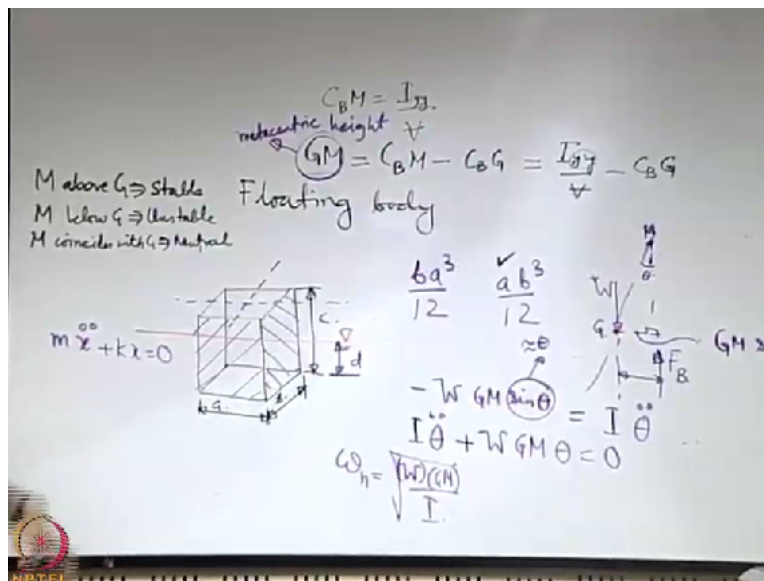 C_B M = I_yy
∀
metacentric height
GM = C_B M - C_B G = I_yy / ∀ - C_B G
M above G ⇒ Stable
M below G ⇒ Unstable
M coincides with G ⇒ Neutral
Floating body
ba³ / 12
✓ ab³ / 12
M
θ
W
G
GM s
F_B
c
d
a
mẍ + kx = 0
≈θ
-W GM sin θ = I θ̈
I θ̈ + W GM θ = 0
ω_n = √((W)(GM) / I)
NPTEL